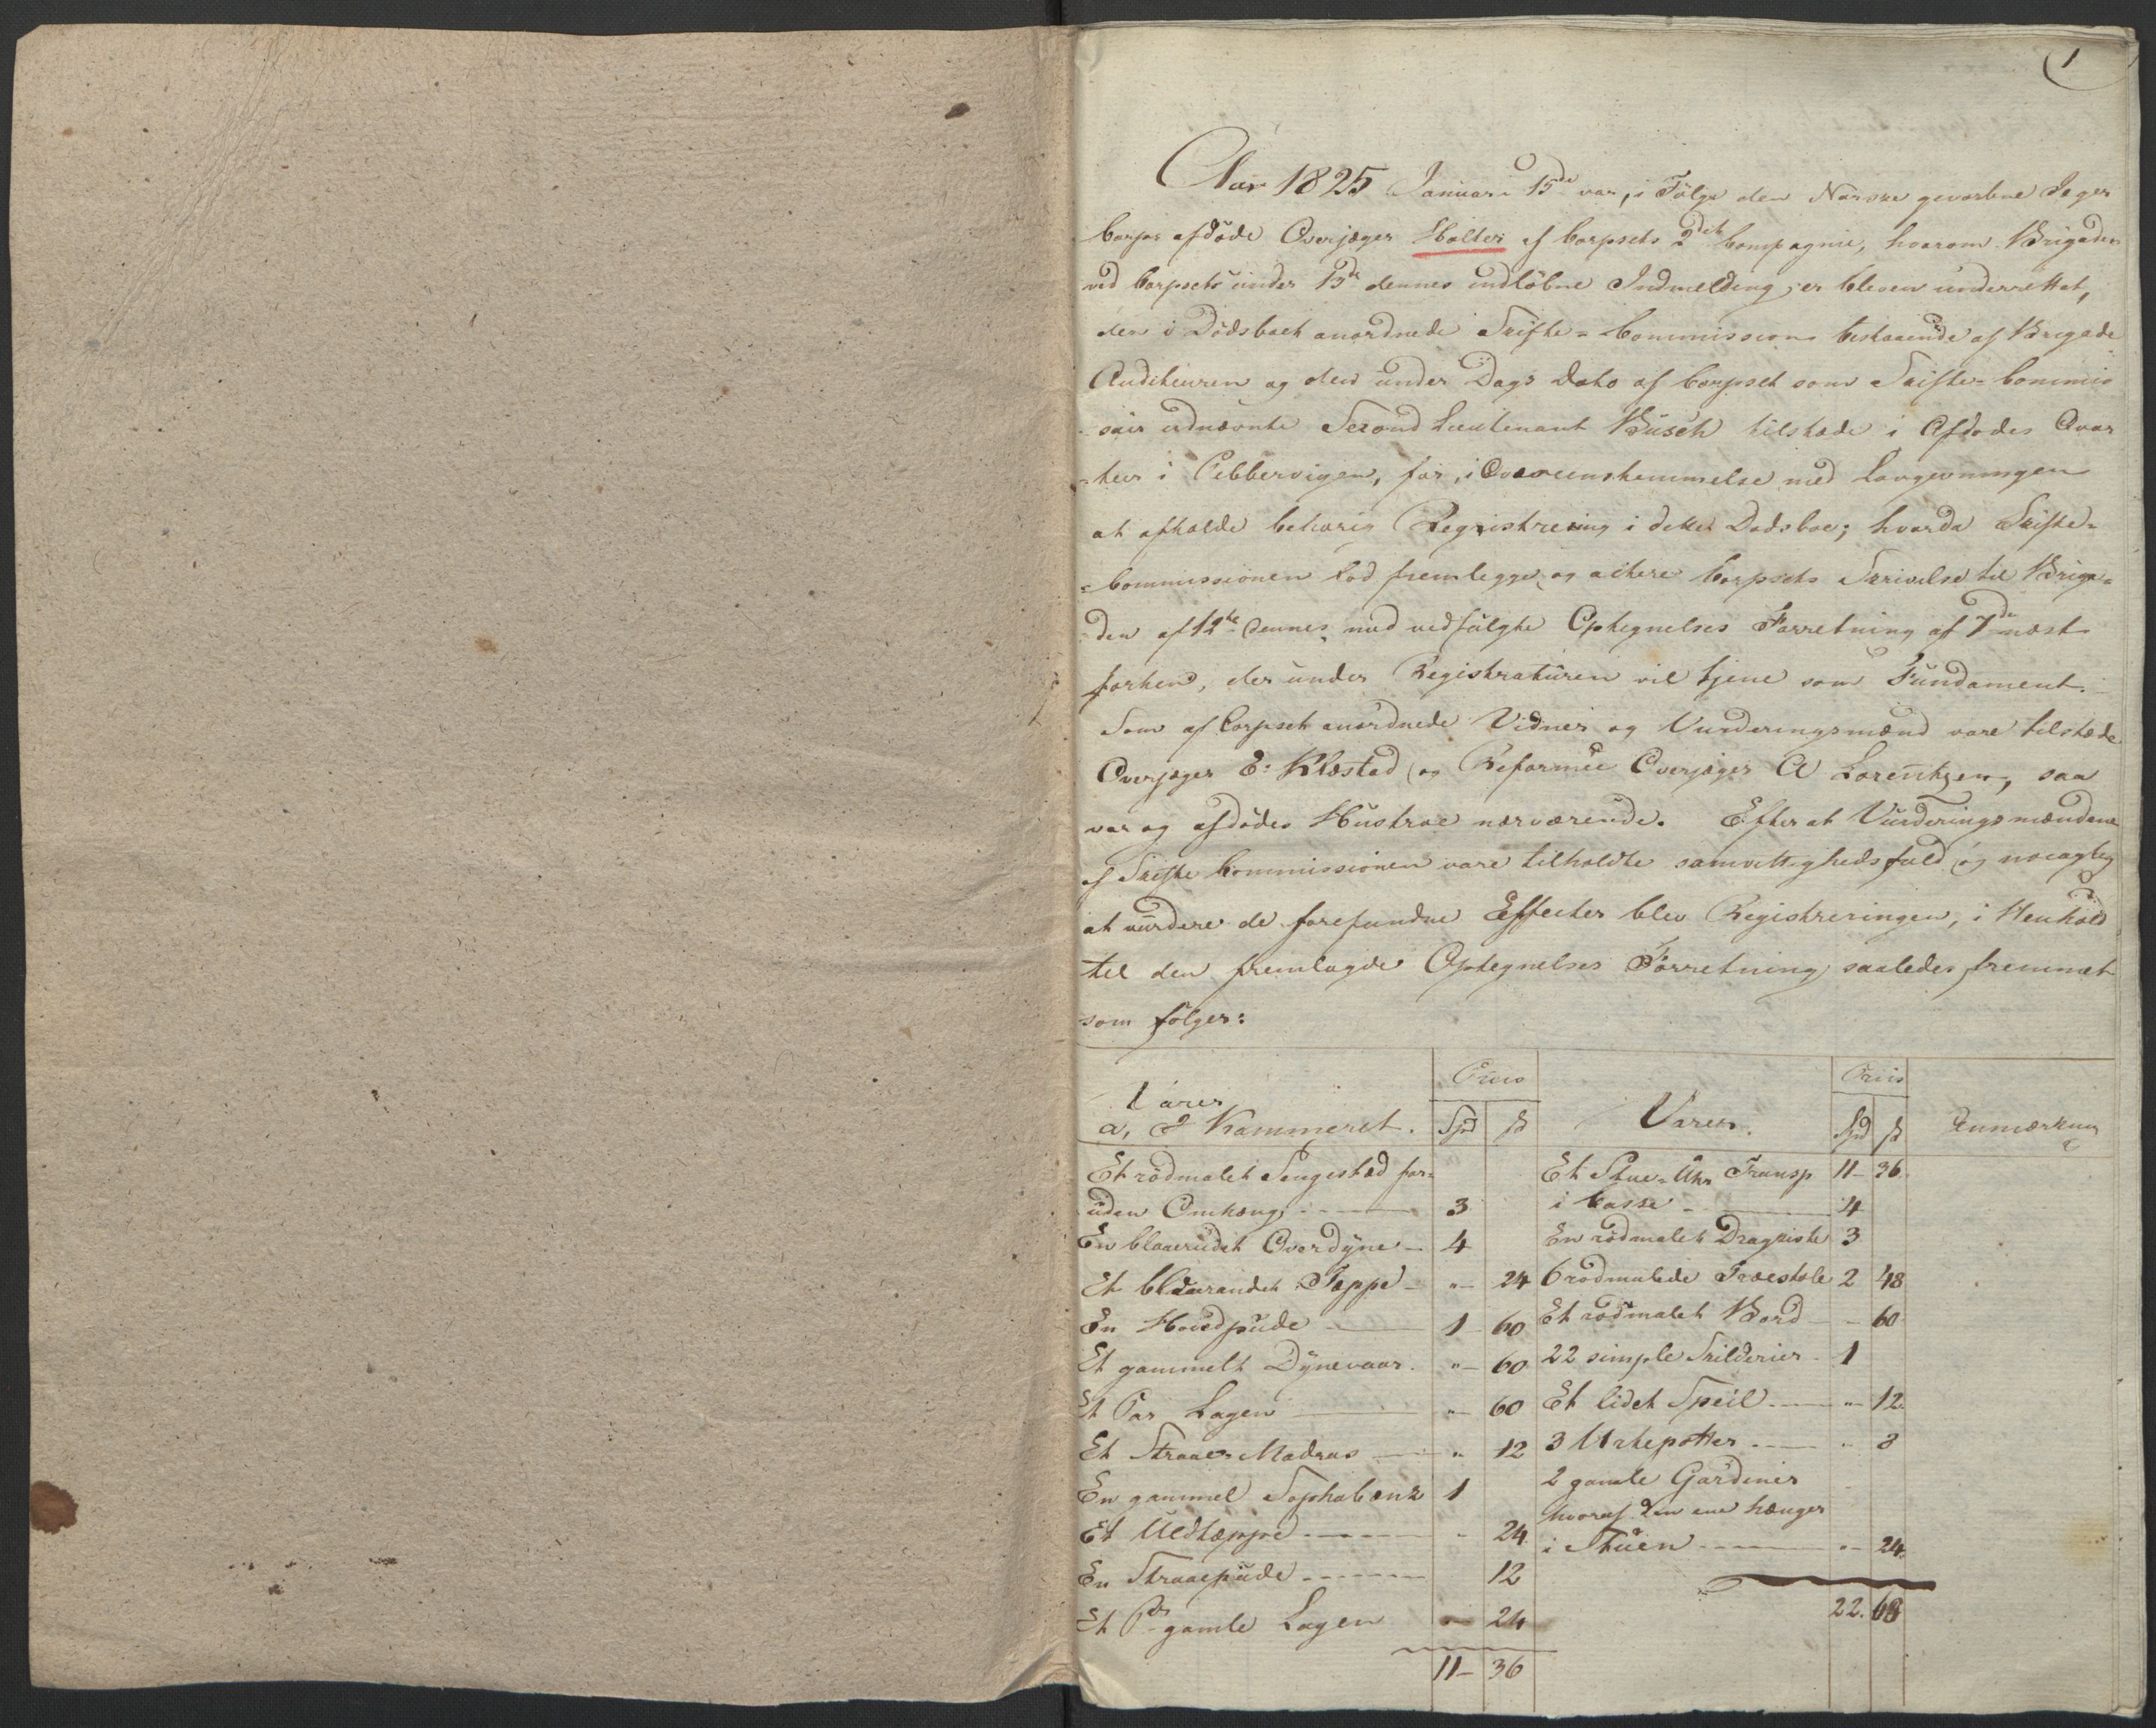 1
Aar 1825 Januari 15de var, i Følge den Norske gevorbne Jæger
Corps afdøde Overjæger Holter af Corpsets 2det Compagnie, hvorom Brigaden
ved Corpsets under 13de dennes indløbne Indmelding er bleven underrettet,
den i Dødsboet anordnede Skifte-Commission bestaaende af Brigade
Auditeuren og den under Dags Dato af Corpset som Skifte-Commis
sair udnævnte Second Lieutenant Busch tilstæde i Afdødes Qvar
-teer i Pebbervigen, for, i Overeenstemmelse med Lovgivningen
at afholde behørig Registrering i dette Dødsboe; hvorda Skifte-
-Commissionen lod fremlegge og actere Corpsets Skrivelse til Briga-
den af 12te dennes, med vedfølgte Optegnelses Forretning af 7de næst-
forhen, der under Registraturen vil tjene som Fundament.
Som af Corpset anordnede Vidner og Vurderingsmænd vare tilstæde
Overjæger E: Klæstad og Reformée Overjæger A Lorentzen, saa
var og afdødes Hustroe nærværende. Efter at Vurderingsmændene
af Skifte Commissionen vare tilholdte samvittighedsfuld og nøiagtig
at vurdere de forefundne Effecter blev Registreringen, i Henhold
til den fremlagde Optegnelses Forretning saaledes fremmet
som følger:
Varer Priis Varer. Priis Anmærkning
a, I Kammeret. Spd ß Spd ß
Et rødmalet Sengestæd for-
uden Omhæng 3
En blaarudet Overdyne 4
Et blaarandet Teppe " 24
En Hovedpude 1 60
Et gammelt Dynevaar " 60
Et Par Lagen " 60
Et Straae Madras " 12
En gammel Sophabænk 1
Et Uldtæppe " 24
En Straaepude 12
Et Pr gamle Lagen " 24
11 36
Et Stue-Uhr Transp 11 36
i Casse 4
En rødmalet Dragkiste 3
6 rødmalede Træestole 2 48
Et rødmalet Bord - 60
22 simple Skilderier 1
Et lidet Speil " 12
3 Urtepotter " 8
2 gamle Gardiner
hvoraf den ene hænger
i Stuen " 24
22. 68